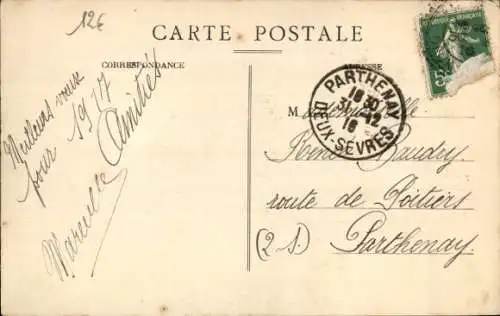 12€
CARTE POSTALE
CORRESPONDANCE
ADRESSE
Meilleurs vœux
pour 1917
Amitiés
Marcelle
PARTHENAY
18 30
31 -12
16
DEUX-SÈVRES
Mademoiselle
Renée Baudry
route de Poitiers
(2 S.) Parthenay